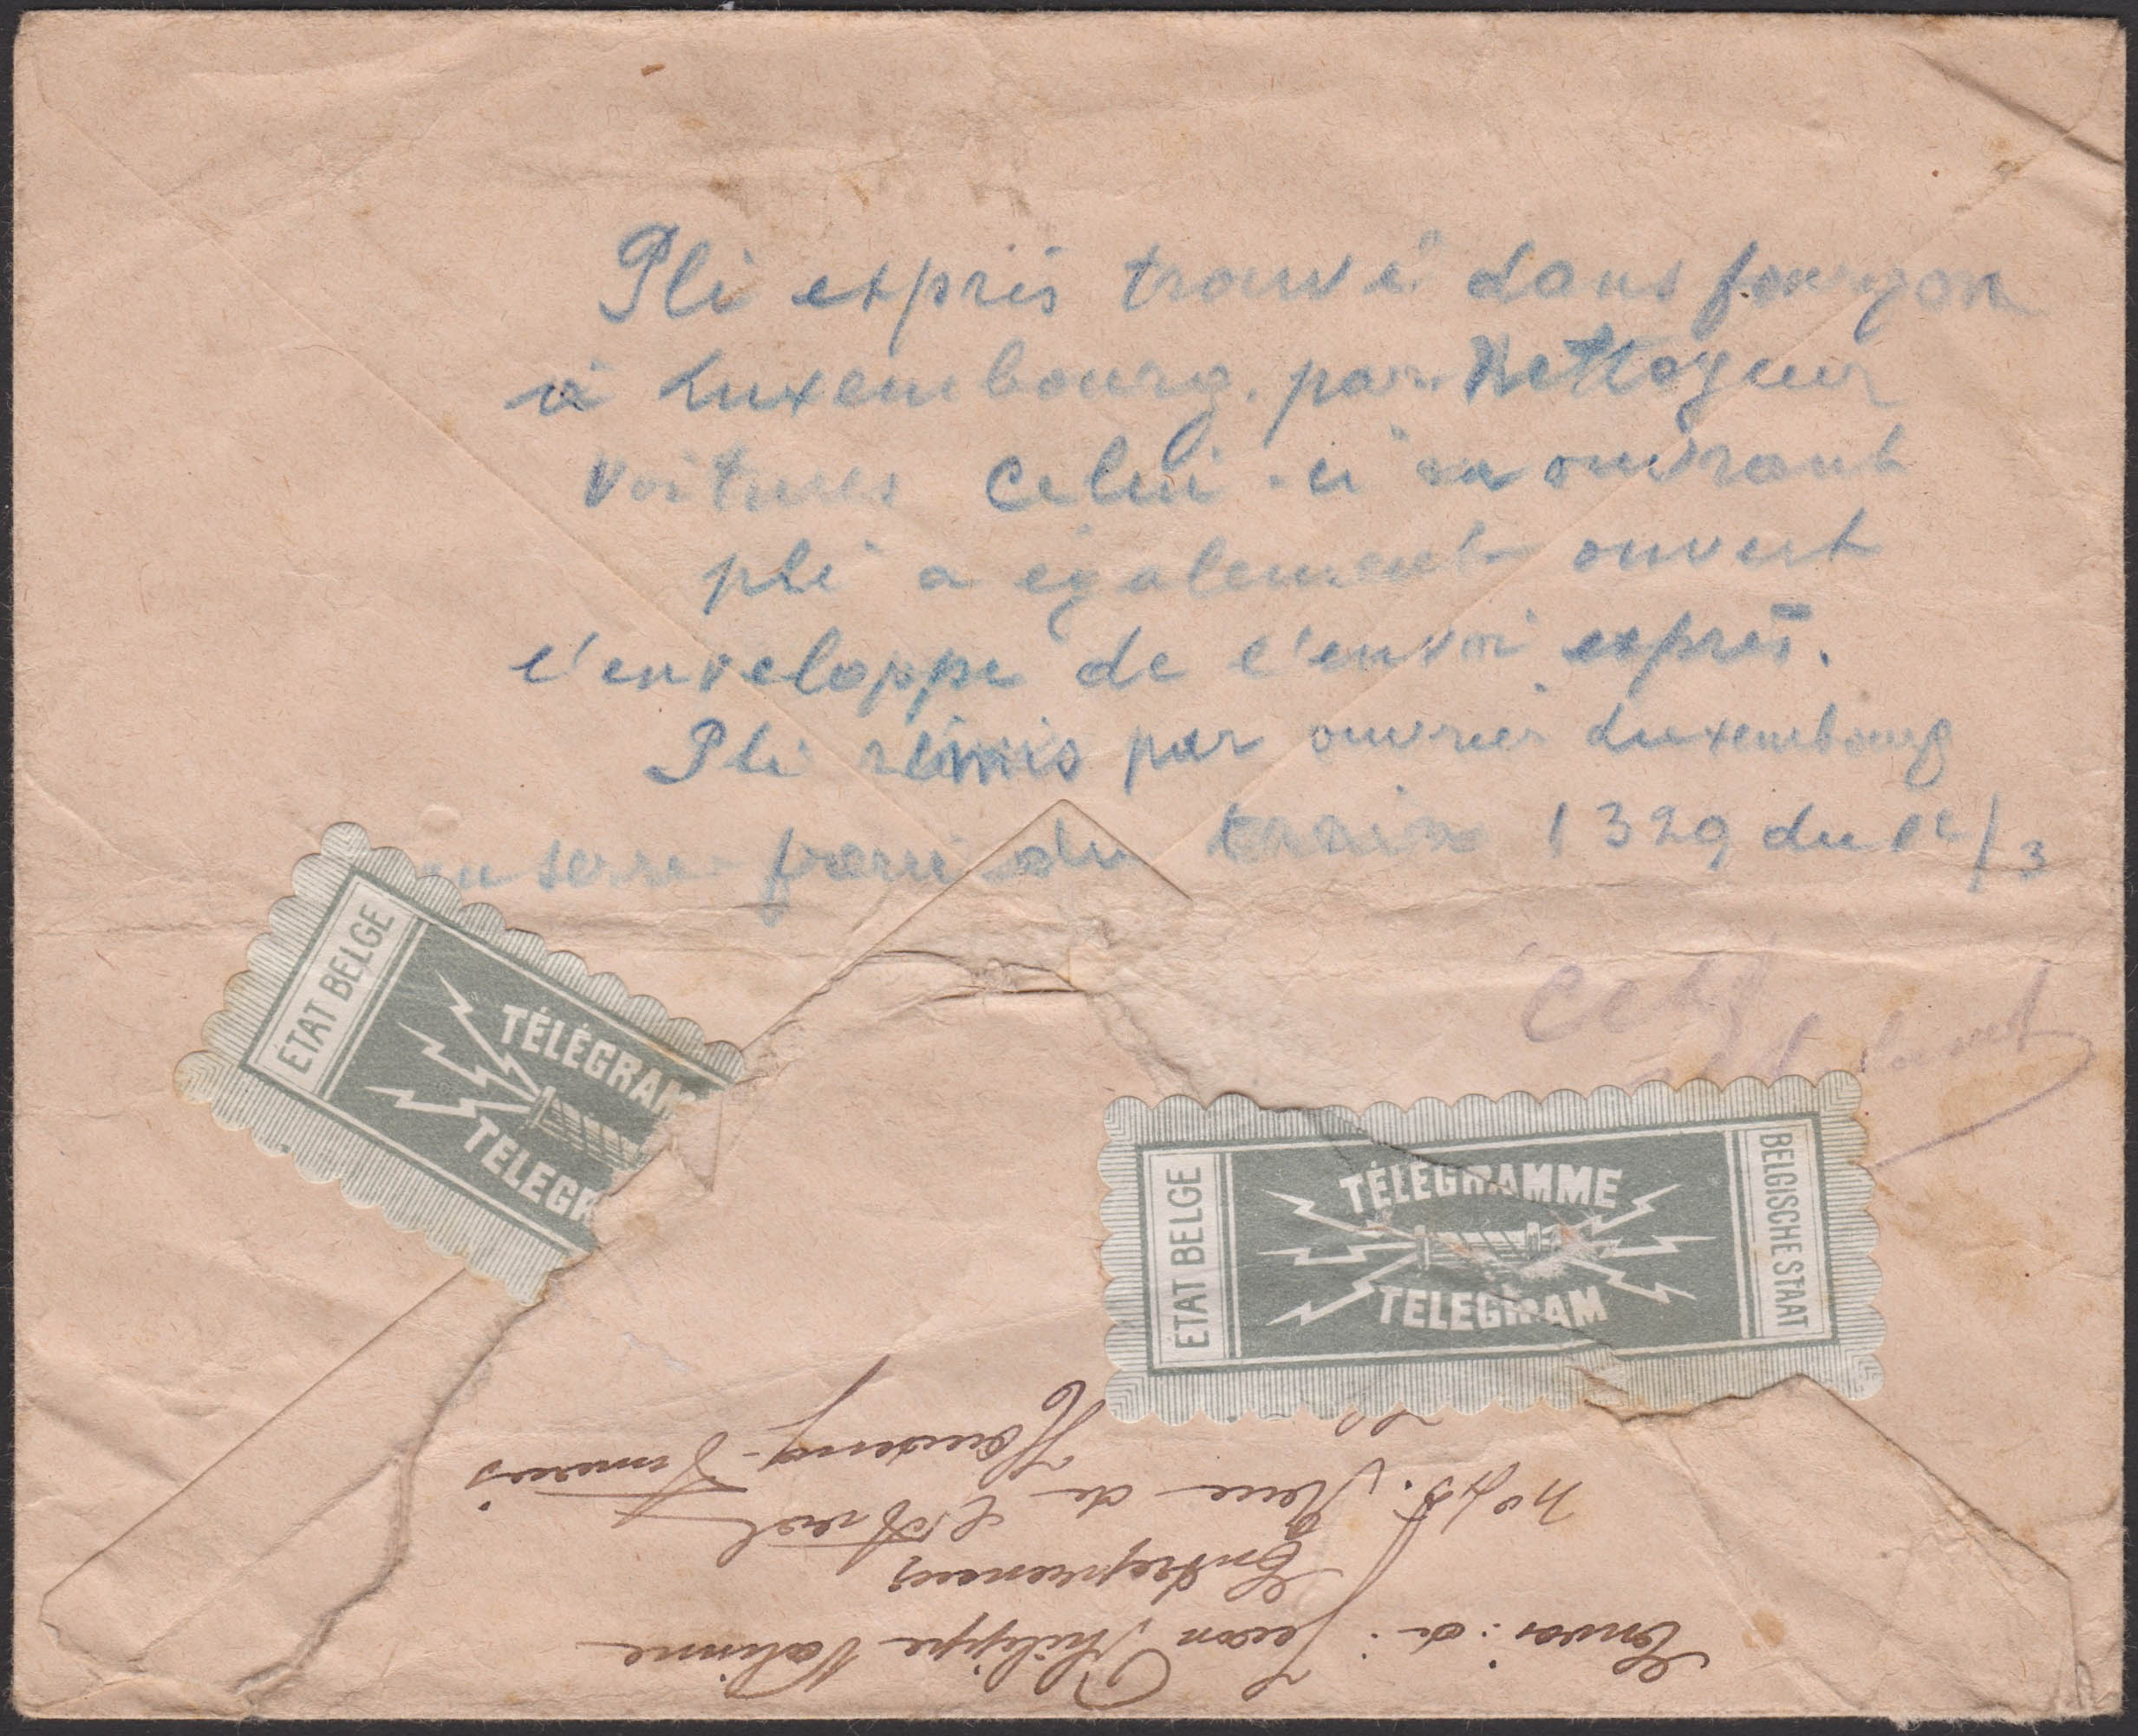 Pli exprès trouvé dans fourgon
à Luxembourg. par Nettoyeur
voitures Celui-ci en ouvrant
pli a également ouvert
l'enveloppe de l'envoi exprès.
Pli remis par ouvrier Luxembourg
au serre frein du train 1329 du 12/3
ÉTAT BELGE
TÉLÉGRAM
TELEGR
ÉTAT BELGE
TÉLÉGRAMME
TELEGRAM
BELGISCHE STAAT
Envoi: de: Jean Philippe
Entrepreneur
Rue de